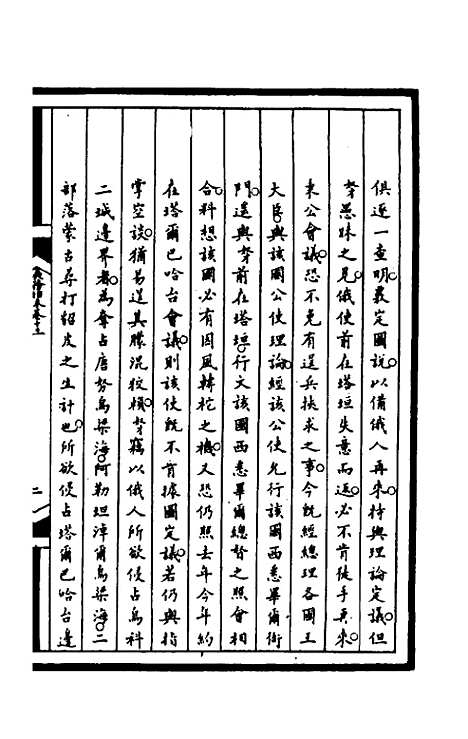 俱逐一查明義定圖說以備俄人再來持與理論定議但
孥愚昧之見俄使前在塔垣失意而返必不肯徒手再來
秉公會議恐不免有逞兵挾求之事今既經總理各國王
大臣與該國公使理論經該公使允行該國西悉畢爾衙
門遵與孥前在塔垣行文該國西悉畢爾總督之照會相
合料想該國必有因風轉柁之機又恐仍照去年今年約
在塔爾巴哈台會議則該使既不肯據圖定議若仍與指
掌空談猶易逞其朦混狡賴孥竊以俄人所欲侵占烏科
二城邊界者為奪占唐努烏梁海阿勒坦淖爾烏梁海二
部落蒙古尋打貂皮之生計也所欲侵占塔爾巴哈台邊
二